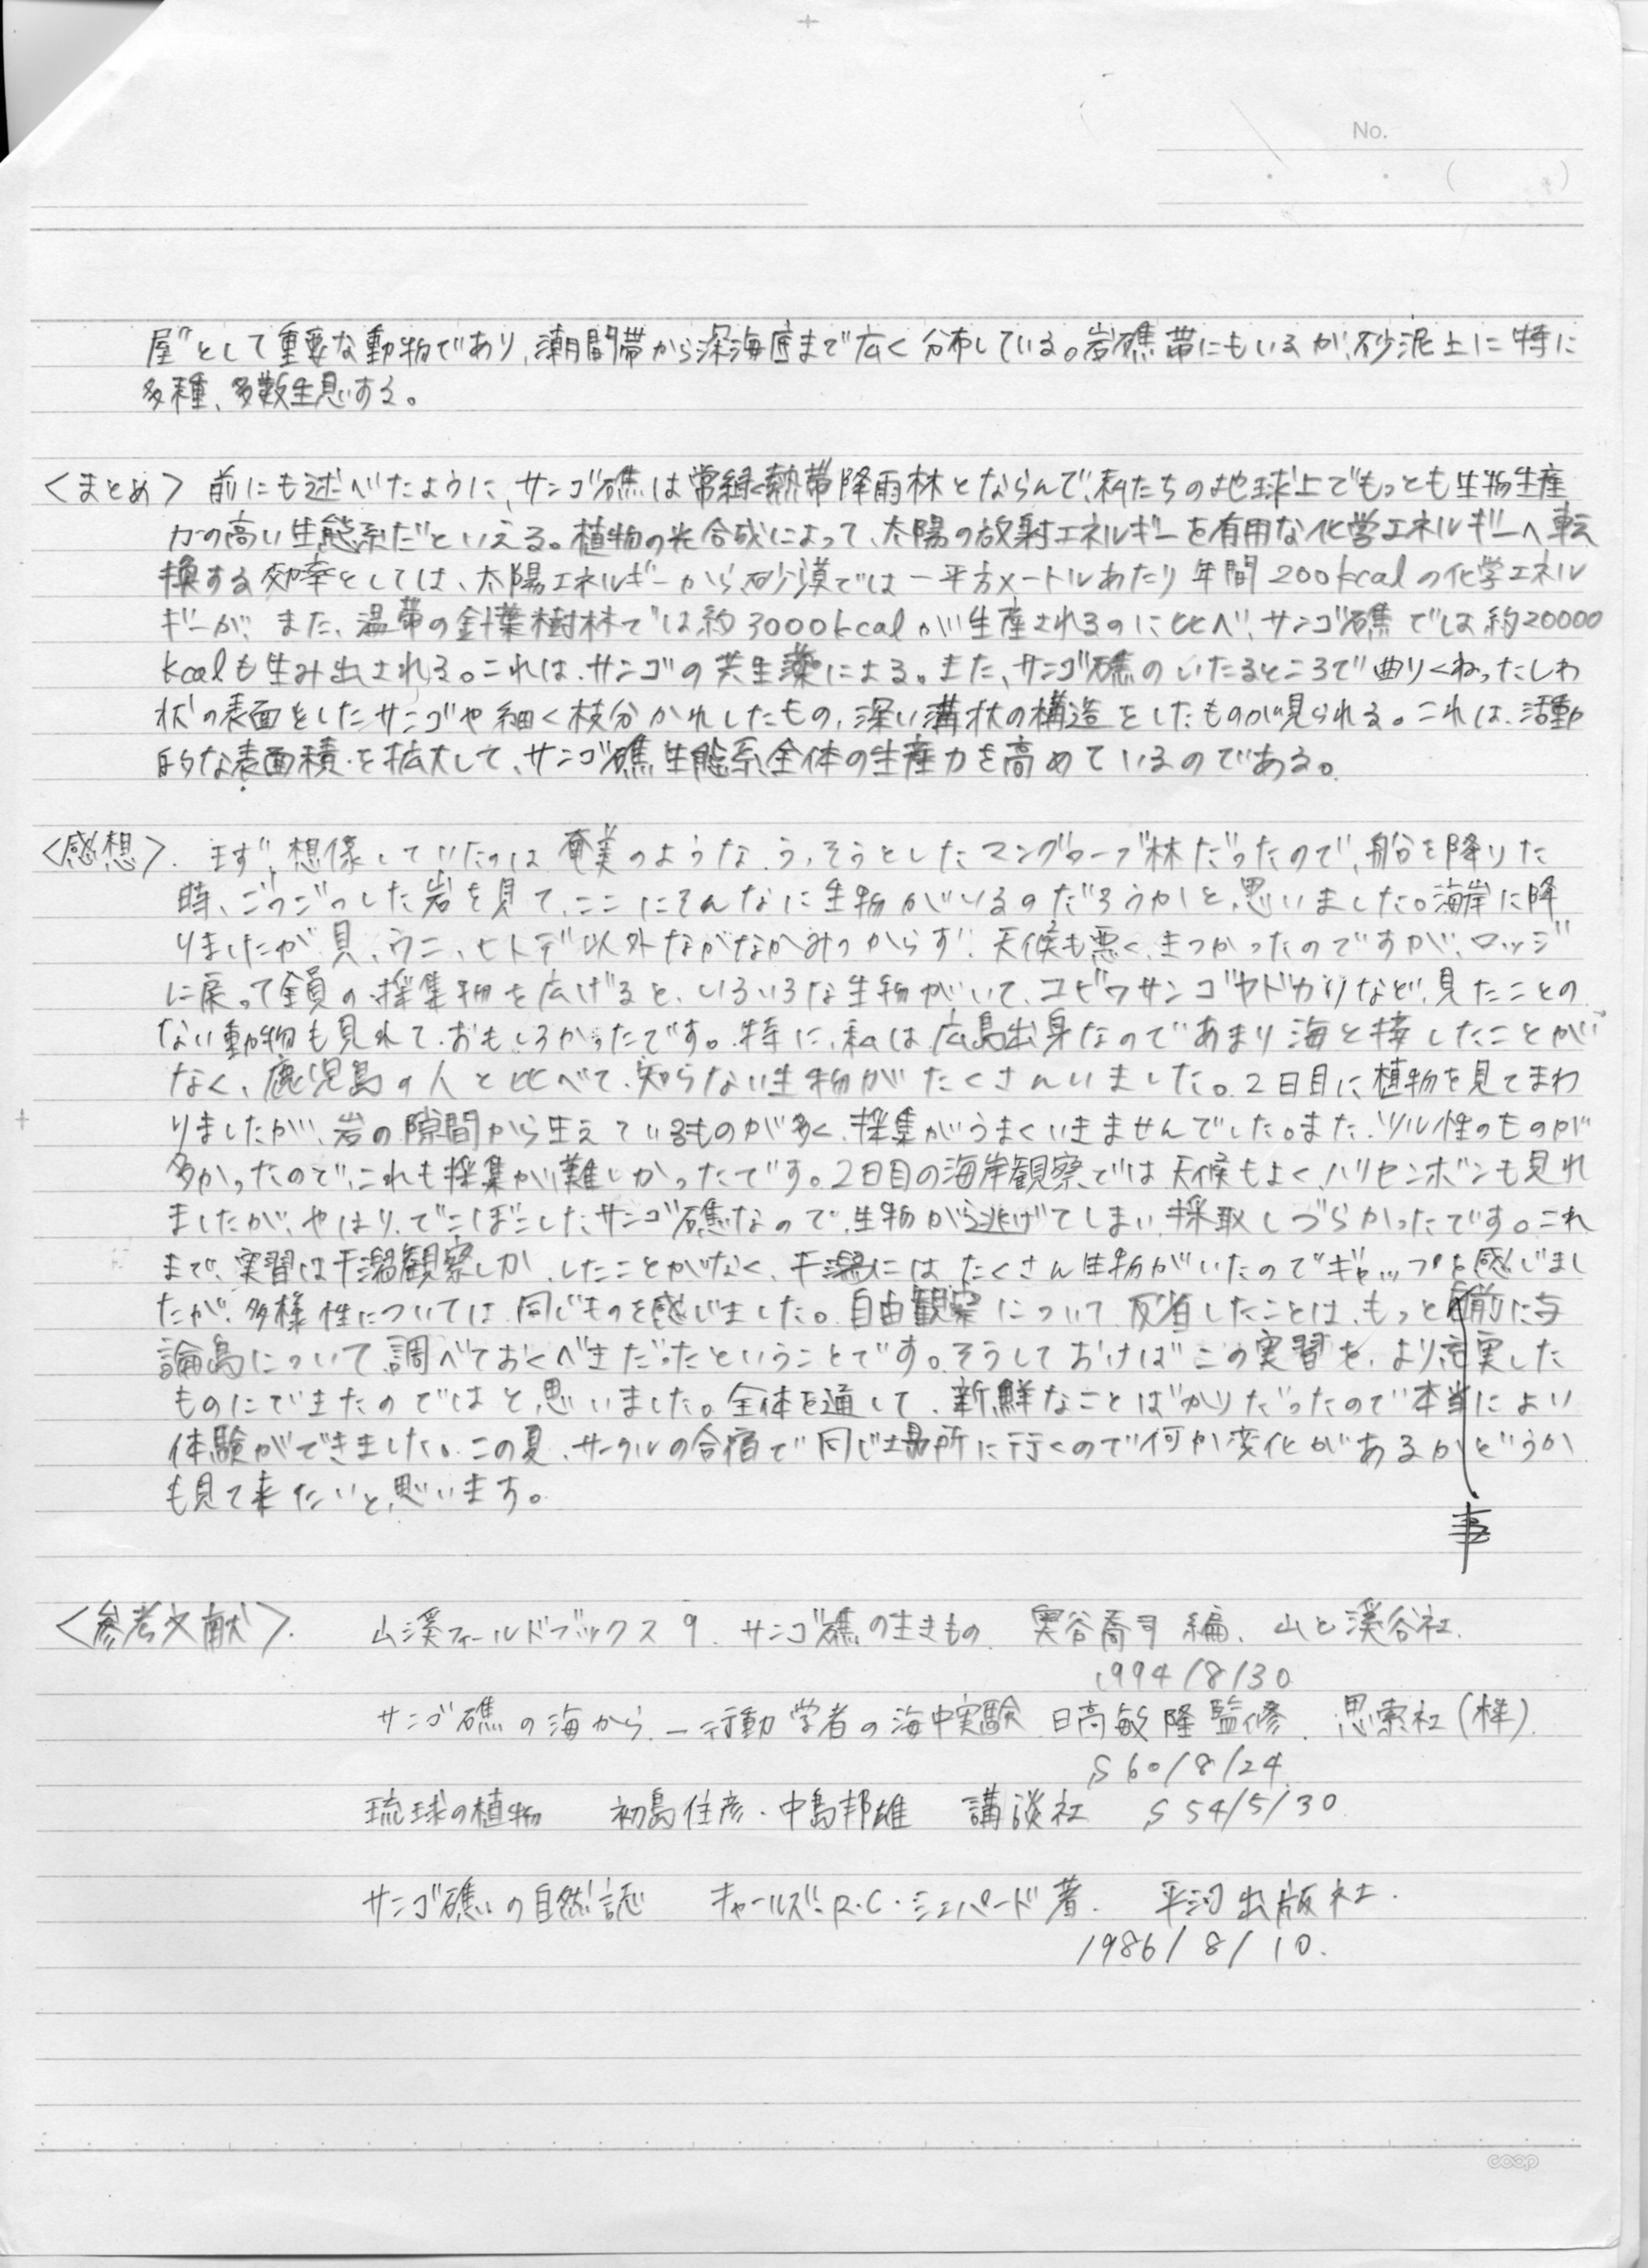 No.
( )
屋"として重要な動物であり、潮間帯から深海底まで広く分布している。岩礁帯にもいるが、砂泥上に特に
多種、多数生息する。
<まとめ> 前にも述べたように、サンゴ礁は常緑熱帯降雨林とならんで、私たちの地球上でもっとも生物生産
力の高い生態系だといえる。植物の光合成によって、太陽の放射エネルギーを有用な化学エネルギーへ転
換する効率としては、太陽エネルギーから、砂漠では一平方メートルあたり年間200kcalの化学エネル
ギーが、また、温帯の針葉樹林では約3000kcalが生産されるのに比べ、サンゴ礁では約20000
kcalも生み出される。これは、サンゴの共生藻による。また、サンゴ礁のいたるところで曲りくねったしわ
状の表面をしたサンゴや細く枝分かれしたもの、深い溝状の構造をしたものが見られる。これは、活動
的な表面積を拡大して、サンゴ礁生態系全体の生産力を高めているのである。
<感想>. まず、想像していたのは奄美のようなうっそうとしたマングローブ林だったので、船を降りた
時、ごつごつした岩を見て、ここにそんなに生物がいるのだろうかと思いました。海岸に降
りましたが、貝、ウニ、ヒトデ以外なかなかみつからず、天候も悪く、きつかったのですが、ロッジ
に戻って全員の採集物を広げると、いろいろな生物がいて、コビワサンゴヤドカリなど、見たことの
ない動物も見れて、おもしろかったです。特に、私は広島出身なのであまり海と接したことが
なく、鹿児島の人と比べて、知らない生物がたくさんいました。2日目に植物を見てまわ
りましたが、岩の隙間から生えているものが多く、採集がうまくいきませんでした。また、ツル性のものが
多かったので、これも採集が難しかったです。2日目の海岸観察では天候もよく、ハリセンボンも見れ
ましたが、やはり、でこぼこしたサンゴ礁なので、生物が逃げてしまい採取しづらかったです。これ
まで、実習は干潟観察しか、したことがなく、干潟にはたくさん生物がいたのでギャップを感じまし
たが、多様性については同じものを感じました。自由観察について反省したことは、もっと前に与
論島について調べておくべきだったということです。そうしておけばこの実習を、より充実した
ものにできたのではと思いました。全体を通して、新鮮なことばかりだったので本当によい
体験ができました。この夏、サークルの合宿で同じ場所に行くので何か変化があるかどうか
も見て来たいと思います。
事
<参考文献>. 山溪フィールドブックス9. サンゴ礁の生きもの 奥谷喬司 編、山と溪谷社.
1994/8/30
サンゴ礁の海から ―行動学者の海中実験 日高敏隆監修. 思索社(株).
S60/8/24
琉球の植物 初島住彦・中島邦雄 講談社 S54/5/30
サンゴ礁の自然誌 チャールズ・R・C・シェパード著. 平河出版社.
1986/8/10.
coop